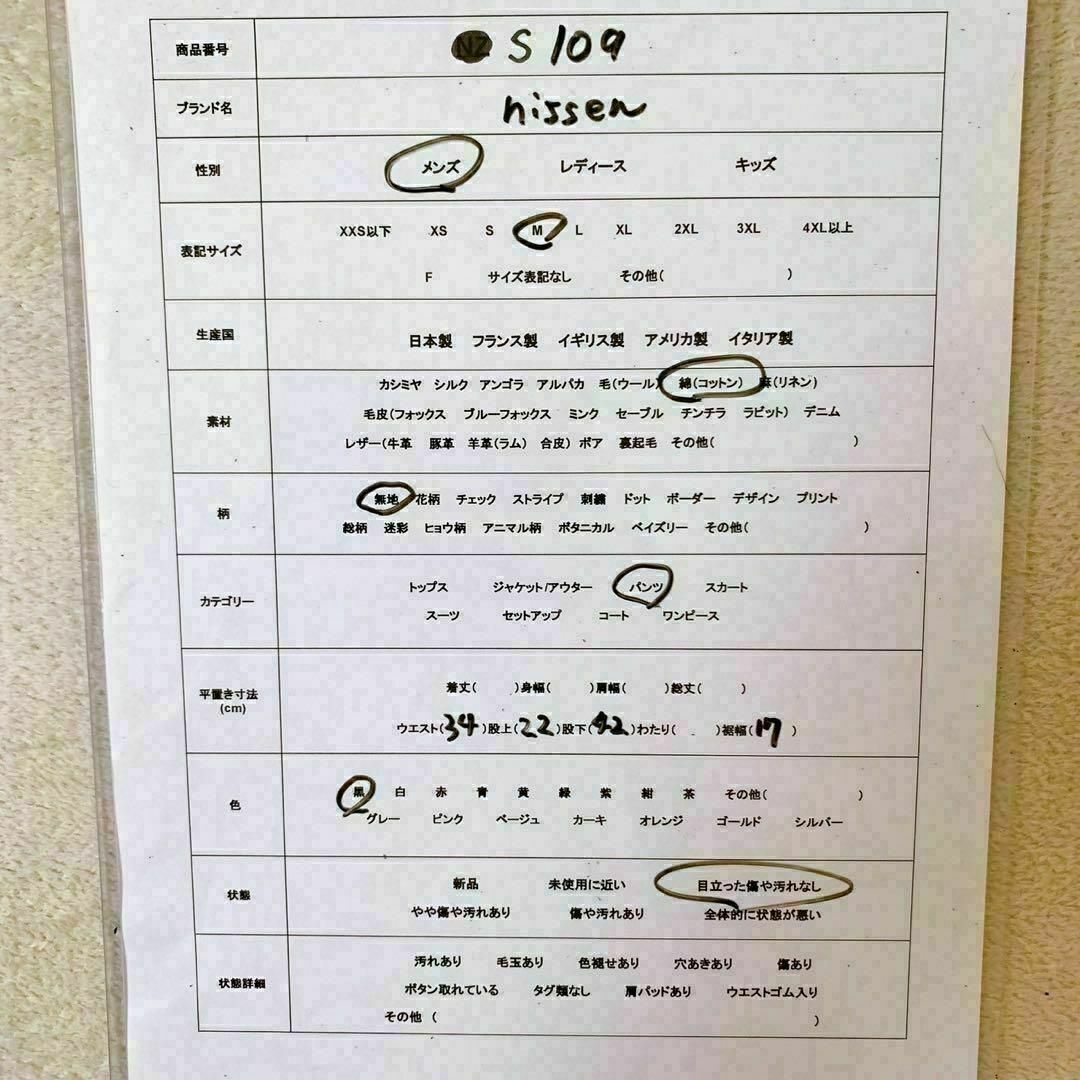 商品番号 NZ S 109
ブランド名 nissen
性別 メンズ レディース キッズ
XXS以下 XS S M L XL 2XL 3XL 4XL以上
表記サイズ
F サイズ表記なし その他( )
生産国 日本製 フランス製 イギリス製 アメリカ製 イタリア製
カシミヤ シルク アンゴラ アルパカ 毛(ウール) 綿(コットン) 麻(リネン)
素材 毛皮(フォックス ブルーフォックス ミンク セーブル チンチラ ラビット) デニム
レザー(牛革 豚革 羊革(ラム) 合皮) ボア 裏起毛 その他( )
無地 花柄 チェック ストライプ 刺繍 ドット ボーダー デザイン プリント
柄
総柄 迷彩 ヒョウ柄 アニマル柄 ボタニカル ペイズリー その他( )
トップス ジャケット/アウター パンツ スカート
カテゴリー
スーツ セットアップ コート ワンピース
着丈( )身幅( )肩幅( )総丈( )
平置き寸法
(cm)
ウエスト(34)股上(22)股下(42)わたり( )裾幅(17)
黒 白 赤 青 黄 緑 紫 紺 茶 その他( )
色
グレー ピンク ベージュ カーキ オレンジ ゴールド シルバー
新品 未使用に近い 目立った傷や汚れなし
状態
やや傷や汚れあり 傷や汚れあり 全体的に状態が悪い
汚れあり 毛玉あり 色褪せあり 穴あきあり 傷あり
状態詳細 ボタン取れている タグ類なし 肩パッドあり ウエストゴム入り
その他 ( )